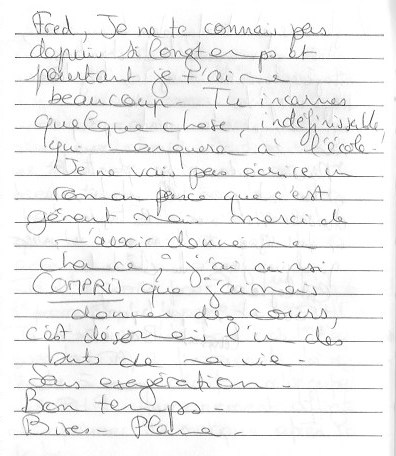 Fred, Je ne te connais pas
depuis si longtemps et
pourtant je t'aime
beaucoup. Tu incarnes
quelque chose, indéfinissable,
qui manquera à l'école!
Je ne vais pas écrire un
roman parce que c'est
gênant mais merci de
m'avoir donné ma
chance, j'ai ainsi
COMPRIS que j'aimais
donner des cours,
c'est désormais l'un des
buts de ma vie.
Sans exagération.
Bon temps.
Bises.